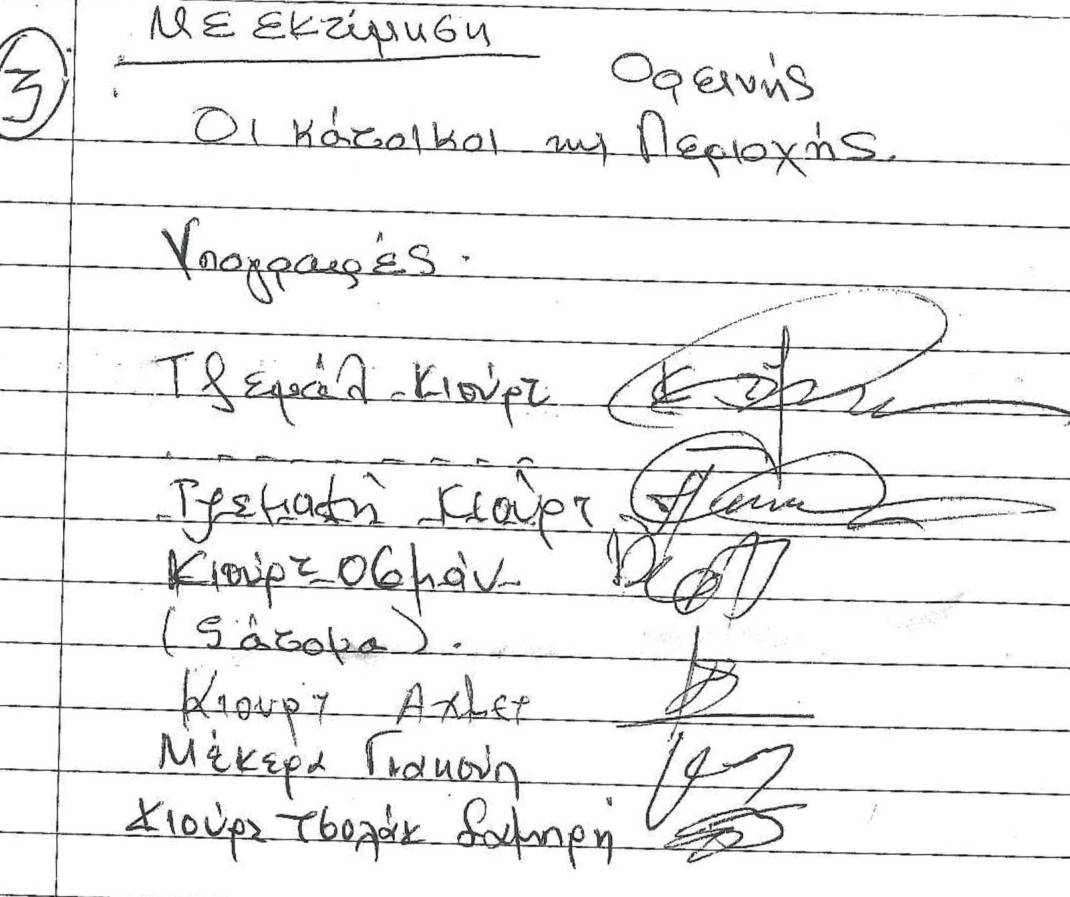 3
Με εκτίμηση
Ορεινής
Οι κάτοικοι της Περιοχής.
Υπογραφές.
Τζεμάλ Κιούρτ
Κιούρτ
Κιούρτ Οσμάν
(5 άτομα).
Κιουρτ Αχμετ
Μέκερα Γιακούπ
Κιούρτ Τσολάκ